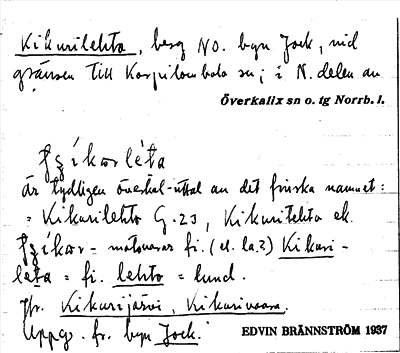 Kikurilehto, berg NO. byn Jock, vid
gränsen till Korpilombolo sn; i N. delen av
Överkalix sn o. tg Norrb. l.
är tydligen överkal-uttal av det finska namnet:
= Kikurilehto G.23, Kikuritehto ek.
= motsvarar fi. (el. la.?) Kikuri-
leta = fi. lehto = lund.
Jfr. Kikurijärvi, Kikurivaara.
Uppg. fr. byn Jock.
EDVIN BRÄNNSTRÖM 1937